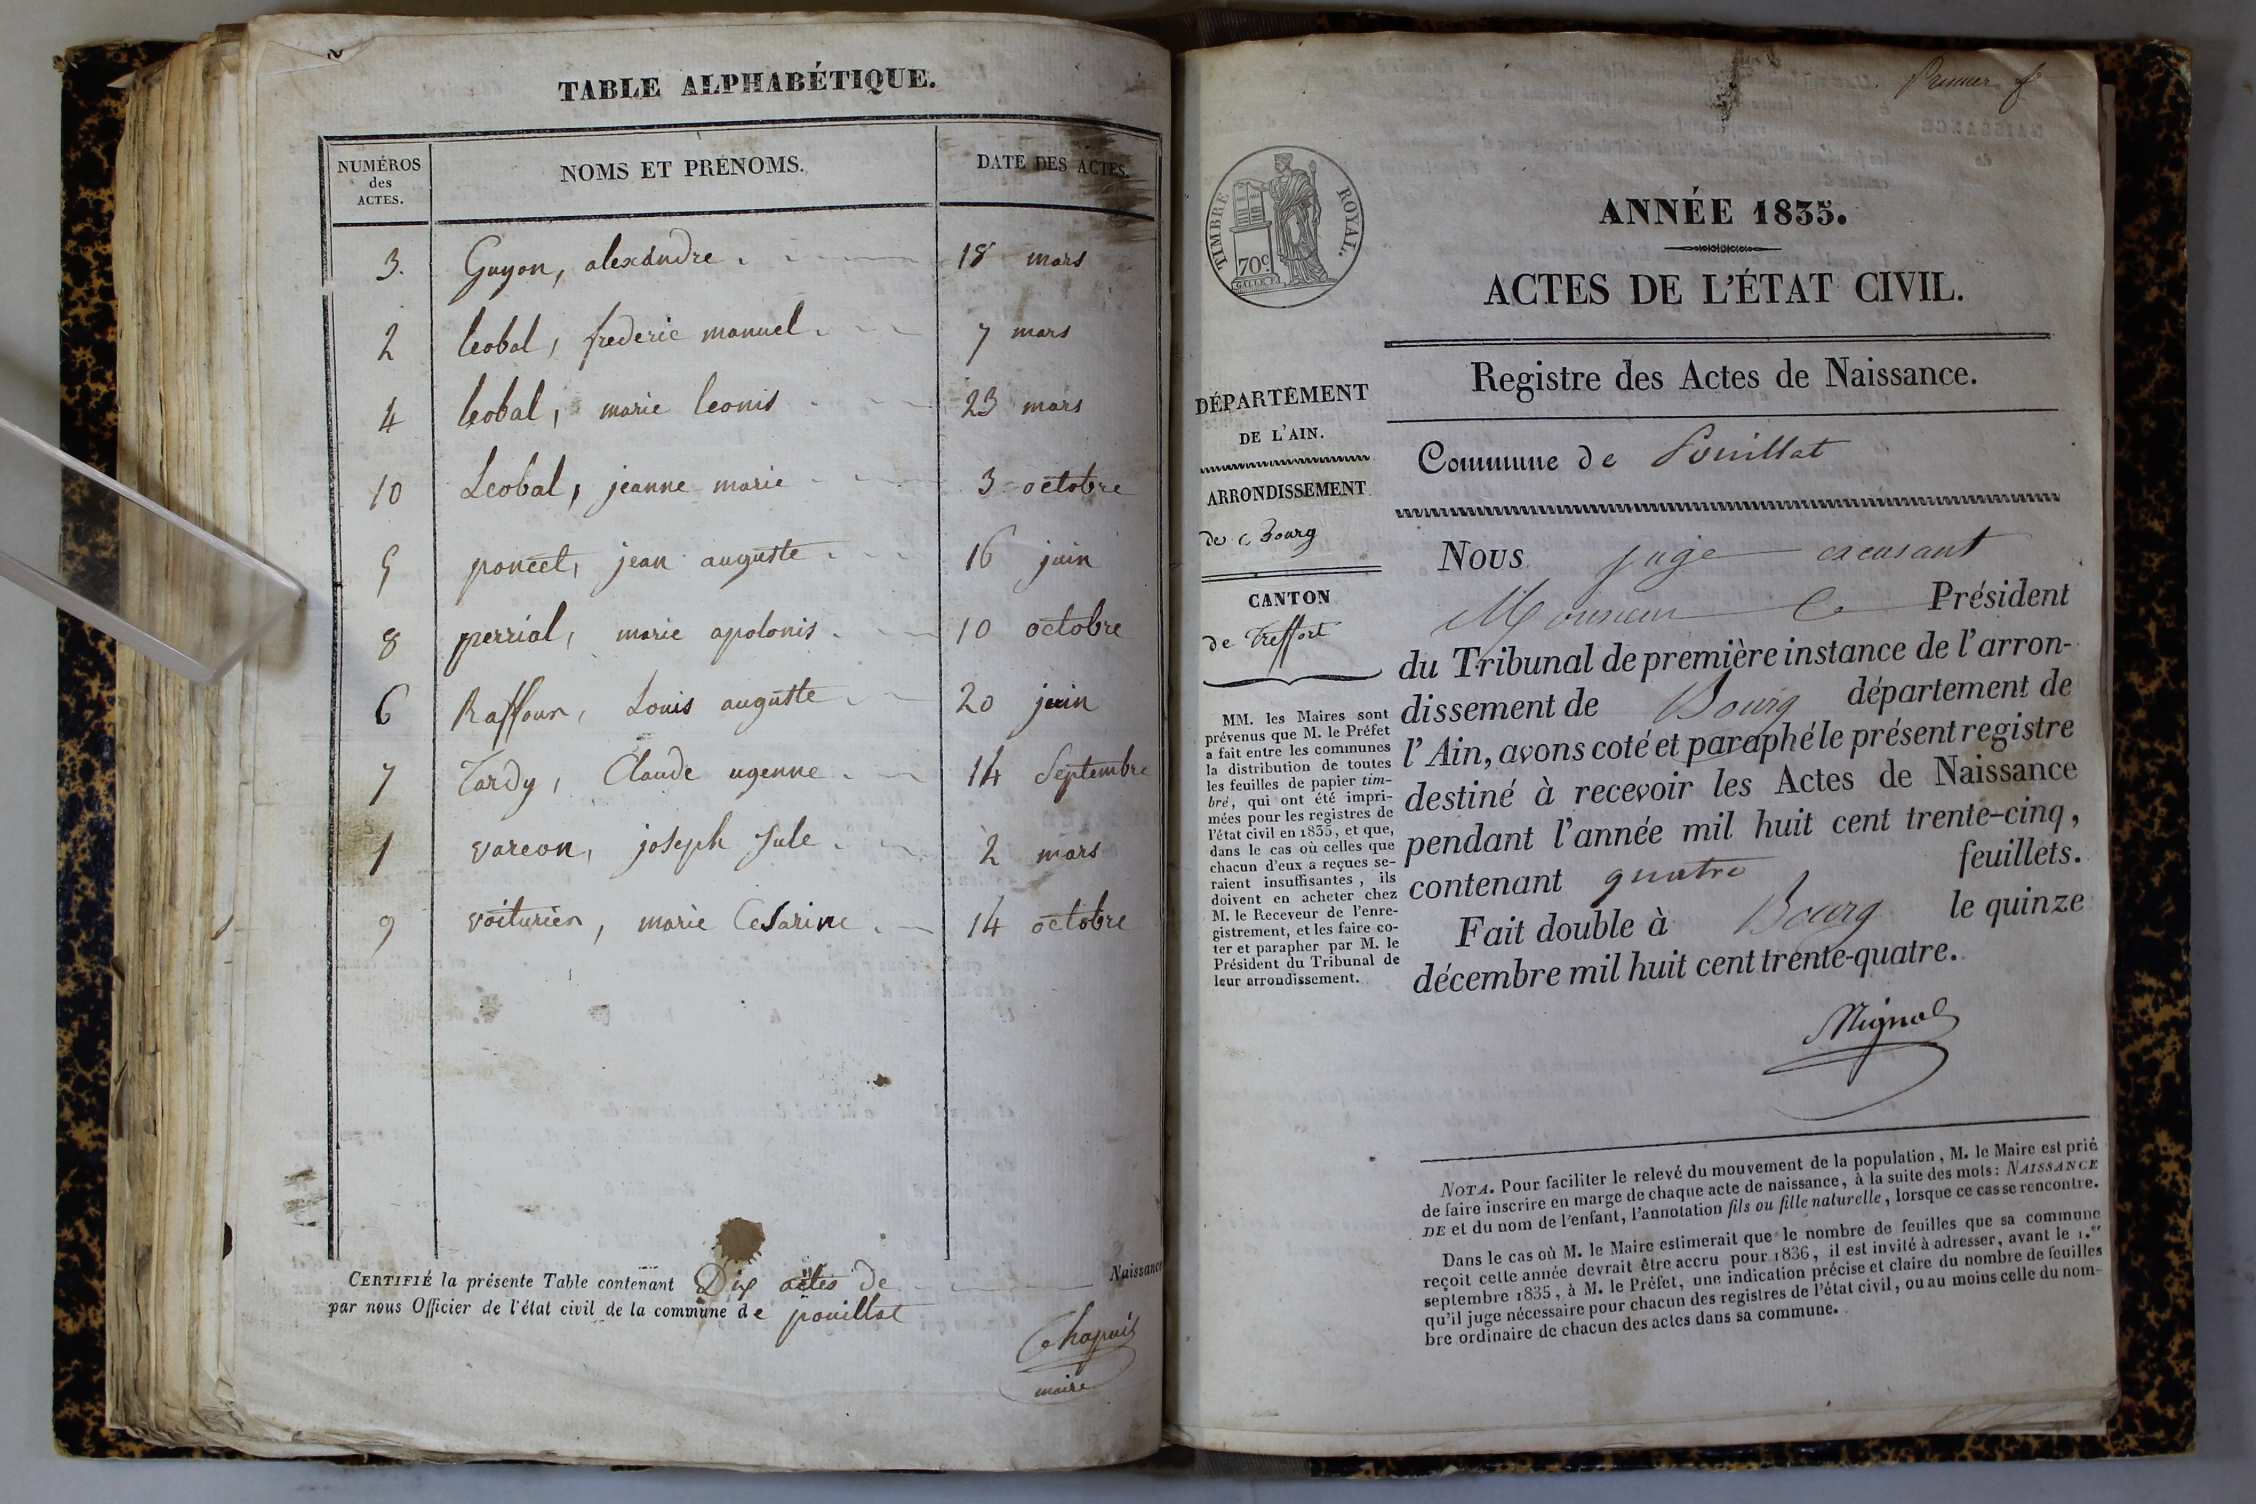 TABLE ALPHABÉTIQUE.
NUMÉROS des ACTES. NOMS ET PRÉNOMS. DATE DES ACTES.
3. Guyon, alexandre 18 mars
2 leobal, frederic manuel 7 mars
4 leobal, marie leonis 23 mars
10 Leobal, jeanne marie 3 octobre
5 poncet, jean auguste 16 juin
8 perrial, marie apolonis 10 octobre
6 Raffour, Louis auguste 20 juin
7 Tardy, Claude ugenne 14 Septembre
1 vareon, joseph Jule 2 mars
9 voiturier, marie Cesarine 14 octobre
CERTIFIÉ la présente Table contenant Dix actes de Naissance
par nous Officier de l'état civil de la commune de pouillat
Chapuis
maire
Premier f
TIMBRE ROYAL.
70c.
ANNÉE 1835.
ACTES DE L'ÉTAT CIVIL.
Registre des Actes de Naissance.
DÉPARTEMENT
DE L'AIN.
ARRONDISSEMENT
de Bourg
CANTON
de Treffort
MM. les Maires sont
prévenus que M. le Préfet
a fait entre les communes
la distribution de toutes
les feuilles de papier tim-
bré, qui ont été impri-
mées pour les registres de
l'état civil en 1835, et que,
dans le cas où celles que
chacun d'eux a reçues se-
raient insuffisantes, ils
doivent en acheter chez
M. le Receveur de l'enre-
gistrement, et les faire co-
ter et parapher par M. le
Président du Tribunal de
leur arrondissement.
Commune de Pouillat
Nous juge excusant
Monsieur le Président
du Tribunal de première instance de l'arron-
dissement de Bourg département de
l'Ain, avons coté et paraphé le présent registre
destiné à recevoir les Actes de Naissance
pendant l'année mil huit cent trente-cinq,
contenant quatre feuillets.
Fait double à Bourg le quinze
décembre mil huit cent trente-quatre.
NOTA. Pour faciliter le relevé du mouvement de la population, M. le Maire est prié
de faire inscrire en marge de chaque acte de naissance, à la suite des mots: NAISSANCE
DE et du nom de l'enfant, l'annotation fils ou fille naturelle, lorsque ce cas se rencontre.
Dans le cas où M. le Maire estimerait que le nombre de feuilles que sa commune
reçoit cette année devrait être accru pour 1836, il est invité à adresser, avant le 1.er
septembre 1835, à M. le Préfet, une indication précise et claire du nombre de feuilles
qu'il juge nécessaire pour chacun des registres de l'état civil, ou au moins celle du nom-
bre ordinaire de chacun des actes dans sa commune.